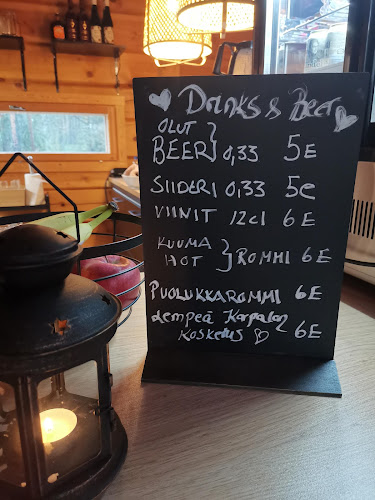 Drinks & Beer
OLUT
BEER 0,33 5E
SIIDERI 0,33 5e
VIINIT 12cl 6E
KUUMA
HOT ROMMI 6E
PUOLUKKAROMMI 6E
Lempeä Karpalon
Kosketus 6E